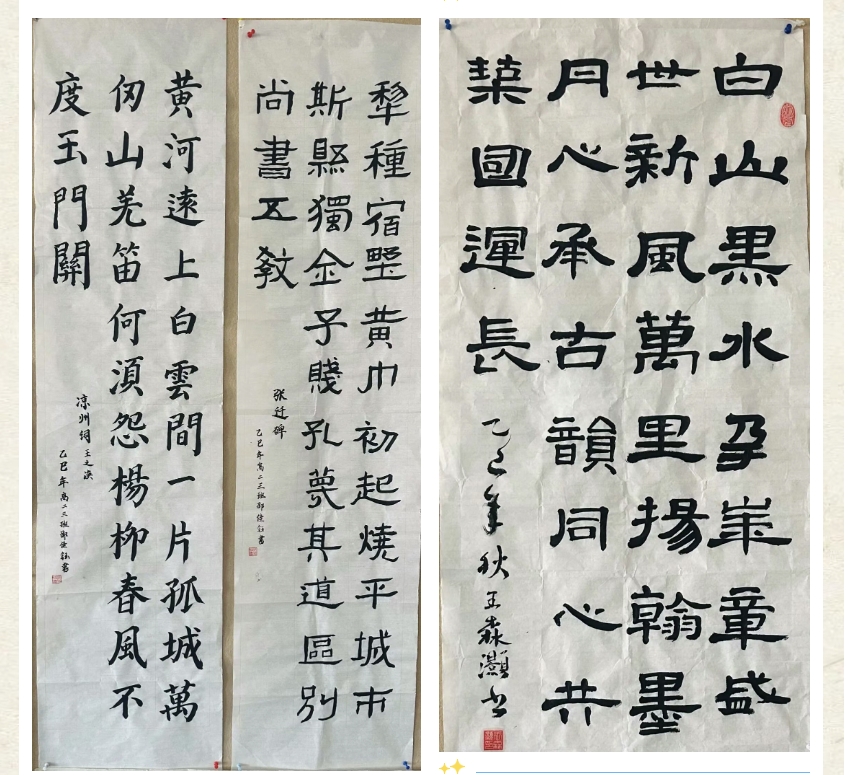 黄河遠上白雲間一片孤城萬
仞山羌笛何須怨楊柳春風不
度玉門關
凉州詞 王之渙
乙巳年高二三班書
犁種宿墅黄巾初起燒平城市
斯縣獨全子賤孔蔑其道區別
尚書五教
张迁碑
乙巳年高二三班書
白山黑水孕崋章盛
世新風萬里揚翰墨
丹心承古韻同心共
築國運長
乙巳年秋王淼灝書